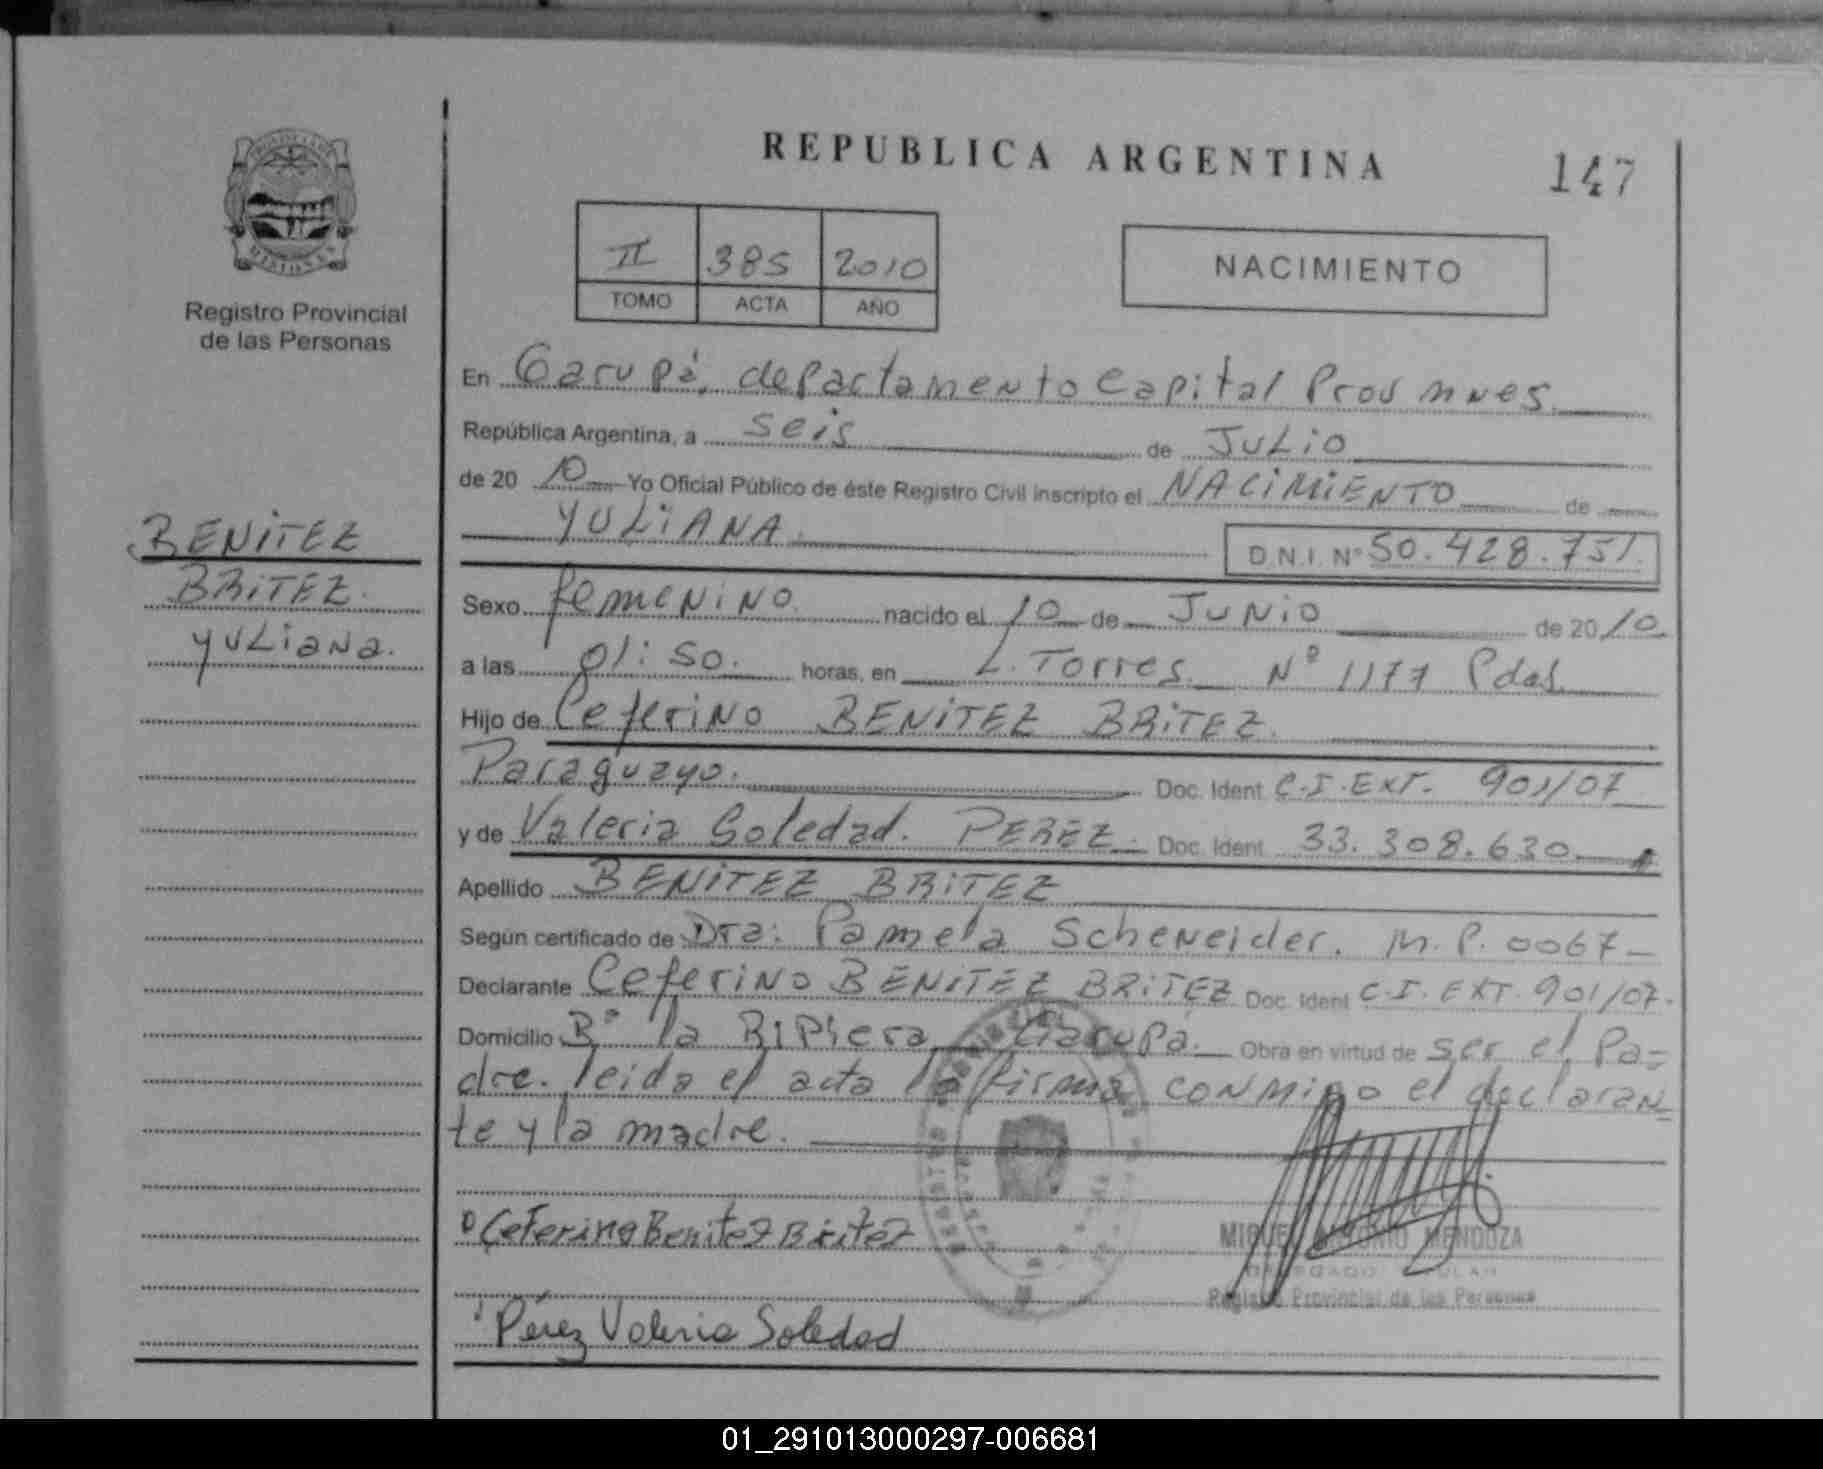 REPUBLICA ARGENTINA
147
MISIONES
Registro Provincial
de las Personas
II 385 2010
TOMO ACTA AÑO
NACIMIENTO
En Garupá, departamento Capital Prov mnes.
República Argentina, a seis de Julio
de 20 10 Yo Oficial Público de éste Registro Civil inscripto el NACIMIENTO de
YULIANA. D.N.I. Nº 50.428.751.
BENITEZ
BRITEZ.
YULiana.
Sexo femenino. nacido el 10 de Junio de 20 10
a las 01:50. horas, en L. Torres. Nº 1177 Pdas.
Hijo de Ceferino BENITEZ BRITEZ.
Paraguayo. Doc. Ident C.I. EXT. 901/07
y de Valeria Soledad. PEREZ. Doc. Ident 33.308.630
Apellido BENITEZ BRITEZ
Según certificado de Dra: Pamela Scheneider. M.P. 0067-
Declarante Ceferino BENITEZ BRITEZ Doc. Ident C.I. EXT. 901/07.
Domicilio Bº la Ripiera Garupá. Obra en virtud de ser el Pa-
dre. leida el acta la firma conmigo el declaran-
te y la madre.
Ceferino Benitez Britez
MIGUEL ANTONIO MENDOZA
DELEGADO TITULAR
Registro Provincial de las Personas
Pérez Valeria Soledad
01_291013000297-006681